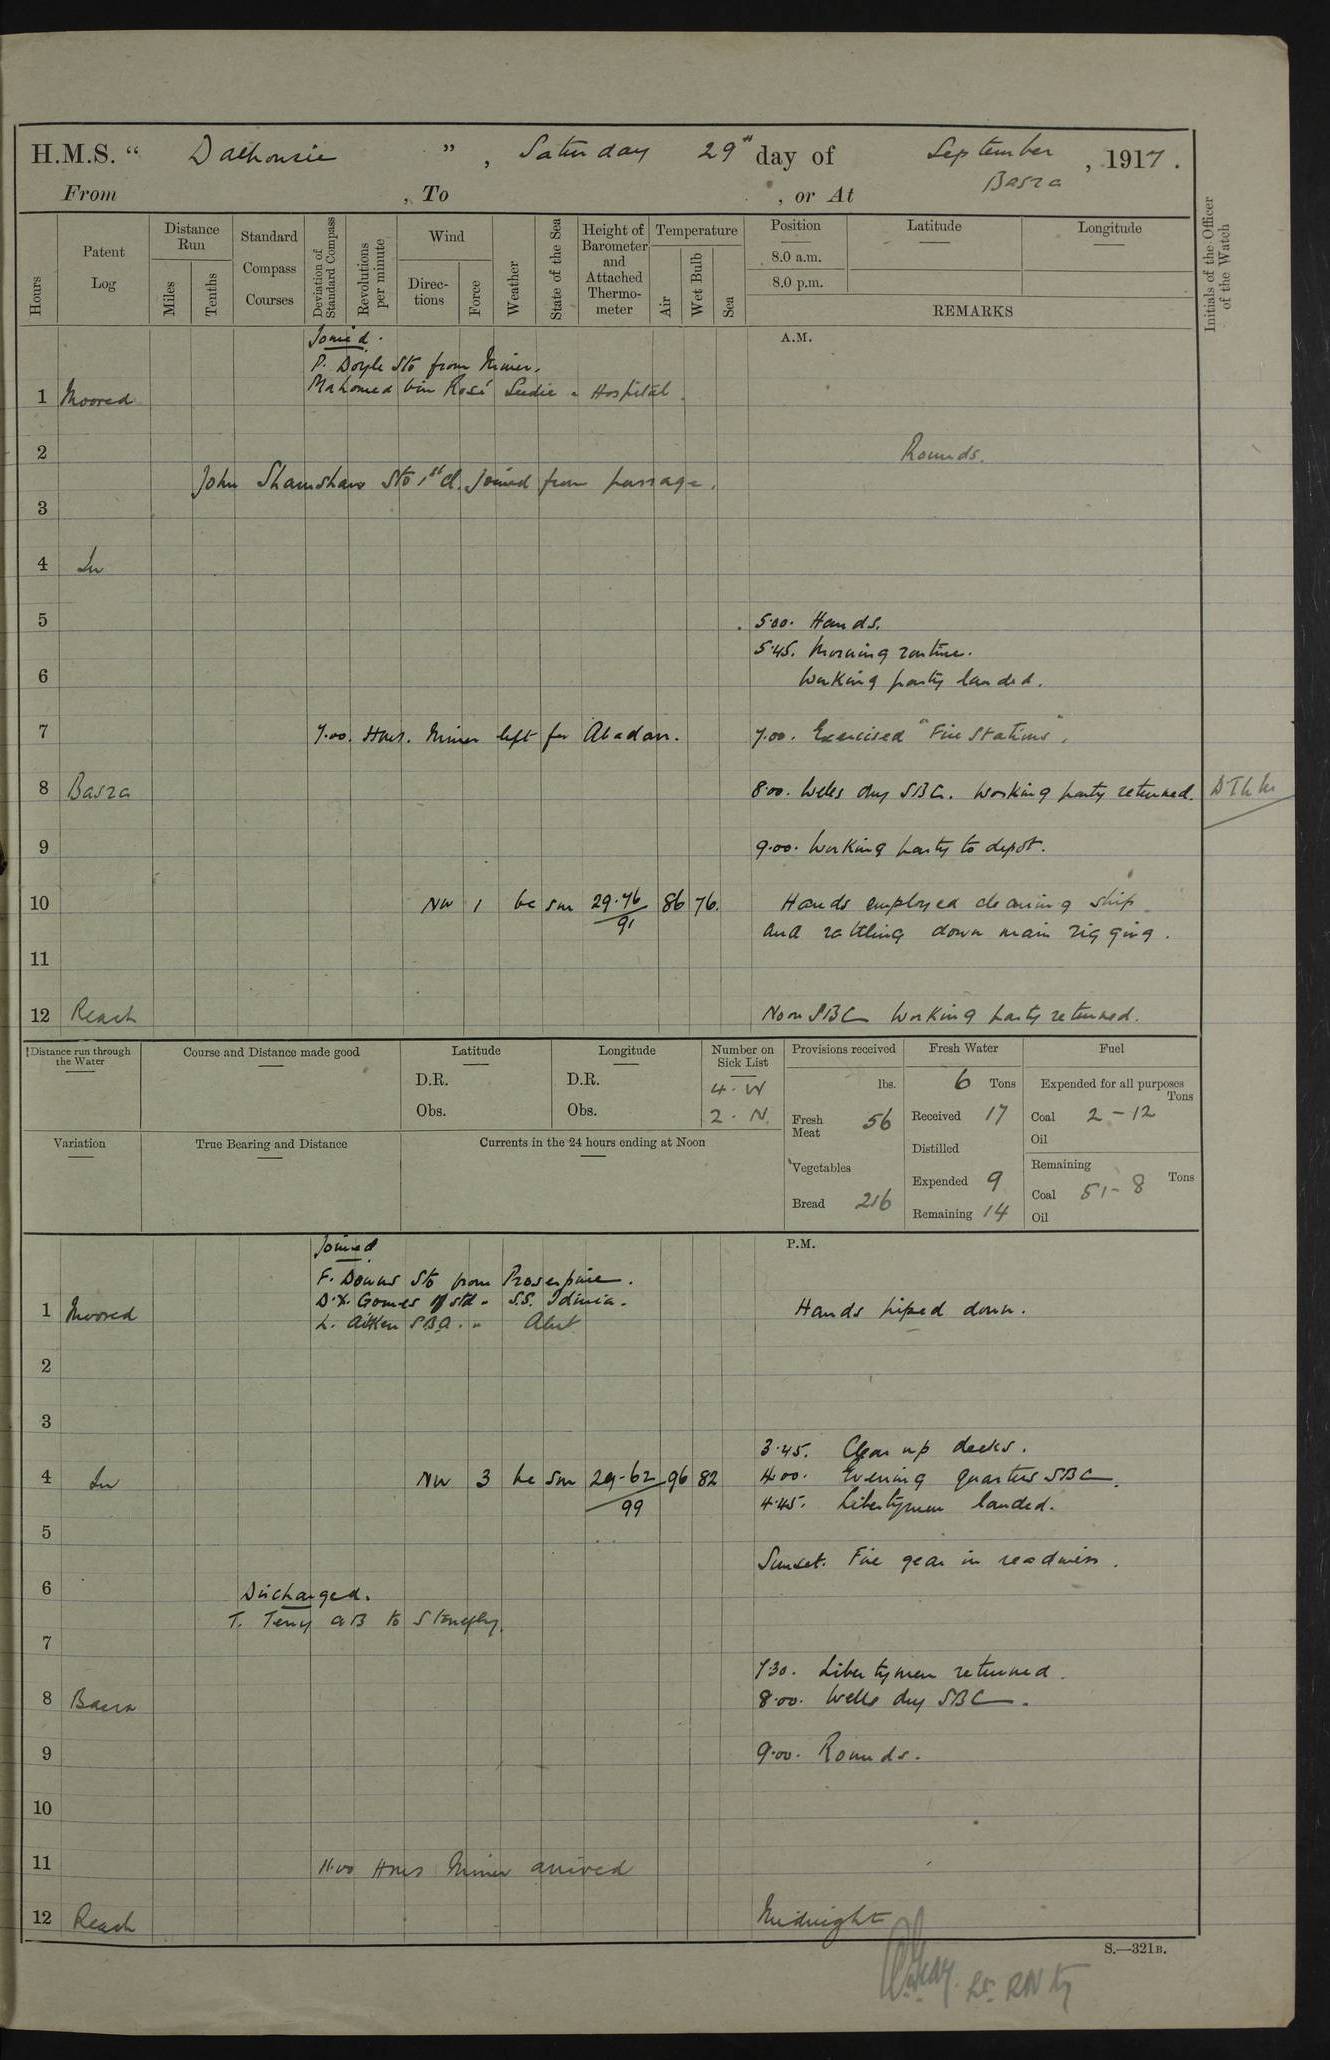 H.M.S. " Dalhousie ", Saturday 29th day of September, 1917.
From , To , or At Basra
Hours
Patent Log
Distance Run
Miles
Tenths
Standard Compass Courses
Deviation of Standard Compass
Revolutions per minute
Wind
Directions
Force
Weather
State of the Sea
Height of Barometer and Attached Thermometer
Temperature
Air
Wet Bulb
Sea
Position
8.0 a.m.
8.0 p.m.
Latitude
Longitude
REMARKS
Initials of the Officer of the Watch
A.M.
Joined.
P. Doyle Sto from Miner.
Mahomed bin Seedie " Hospital.
1 Moored
2 Rounds.
John Sto 1st cl. joined from passage.
3
4 In
5 5.00. Hands.
5.45. Morning routine.
6 Working party landed.
7 7.00. Hrs. Miner left for Abadan. 7.00. Exercised "Fire Stations".
8 Basra 8.00. Wells dry SBC. Working party returned.
9 9.00. Working party to depot.
10 NW 1 bc sm 29.76 86 76. Hands employed cleaning ship
91 and rattling down main rigging.
11
12 Reach Noon SBC Working party returned.
Distance run through the Water
Course and Distance made good
Latitude
D.R.
Obs.
Longitude
D.R.
Obs.
Number on Sick List
4. W
2. N.
Provisions received
lbs.
Fresh Meat 56
Vegetables
Bread 216
Fresh Water
6 Tons
Received 17
Distilled
Expended 9
Remaining 14
Fuel
Expended for all purposes
Tons
Coal 2-12
Oil
Remaining
Tons
Coal 51-8
Oil
Variation
True Bearing and Distance
Currents in the 24 hours ending at Noon
P.M.
Joined
F. Downs Sto from Proserpine.
D.X. Gomes Off std " S.S.
L. Aitken SBA. " Alert
1 Moored Hands piped down.
2
3
3.45. Clear up decks.
4 In NW 3 bc sm 29.62 96 82 4.00. Evening quarters SBC.
99 4.45. Libertymen landed.
5
Sunset. Fire gear in readiness.
6
Discharged.
T. Terry AB to Stonefly.
7
7.30. Libertymen returned.
8 Basra 8.00. Wells dry SBC.
9 9.00. Rounds.
10
11 11.00 Hrs Miner arrived
12 Reach Midnight
S.—321B.